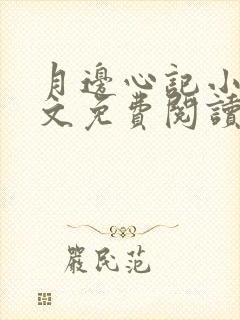 月邊心記小
文免費閱讀
嚴民范